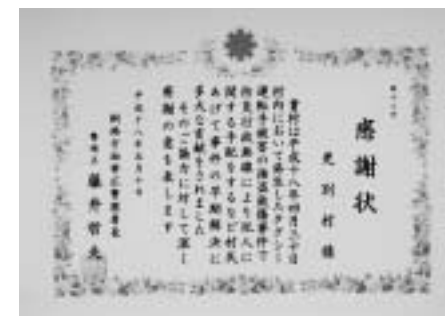 感謝状
更別村 様
貴村は平成十八年四月二十日
村内において発生したタクシー
運転手被害の強盗致傷事件で
防災行政無線により犯人に
関する手配をするなど村民
あげて事件の早期解決に
多大な貢献をされました
そのご協力に対して深く
感謝の意を表します
平成十八年五月十日
釧路方面帯広警察署長
警視正 藤井哲夫